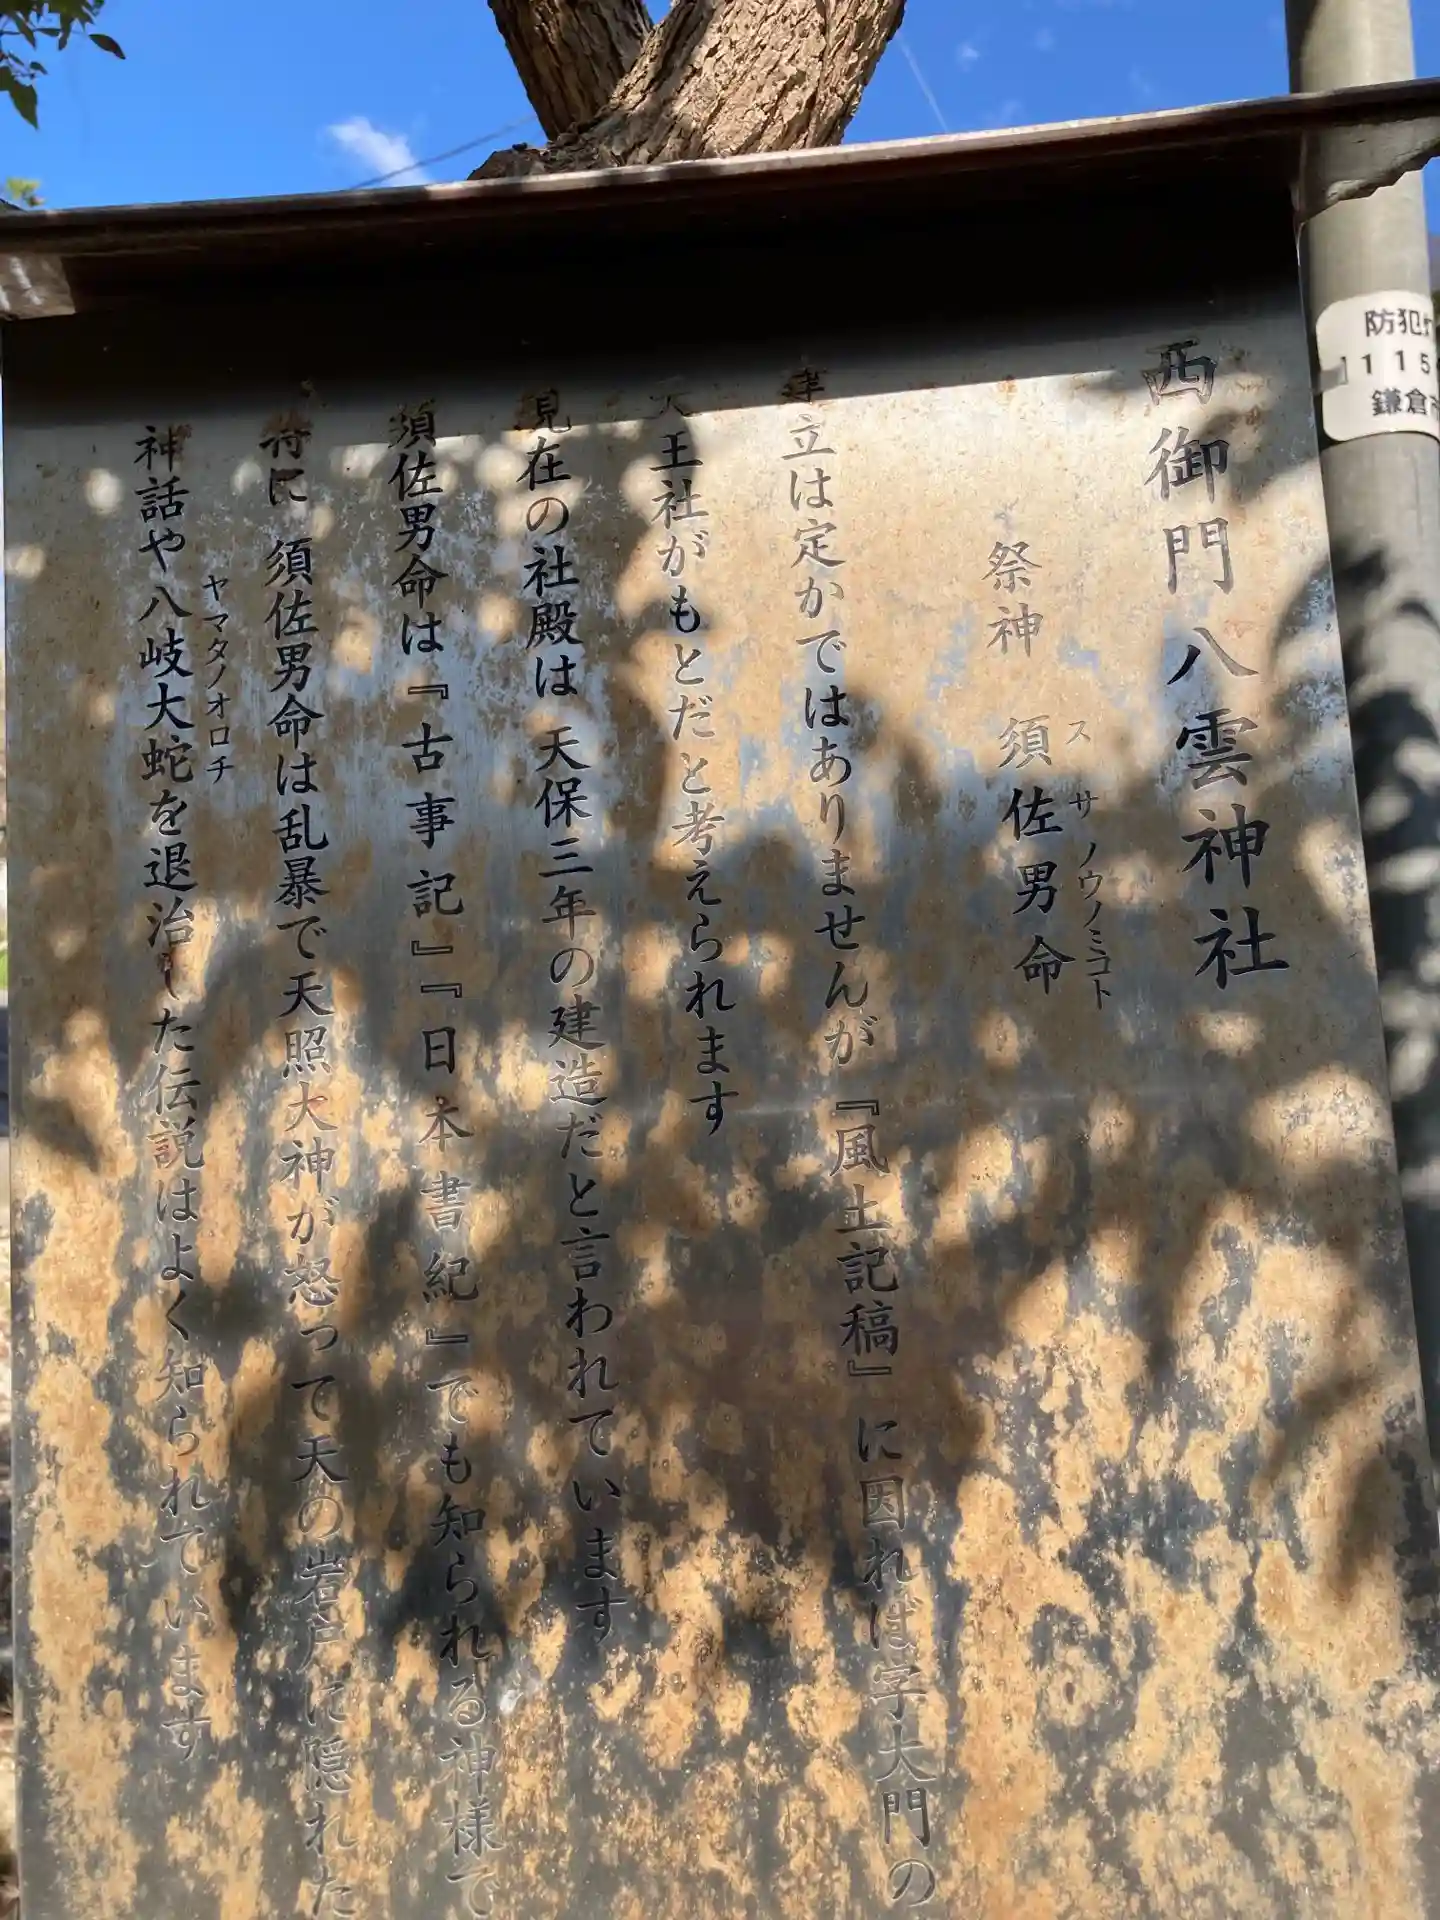 西御門八雲神社
祭神 須佐男命
スサノウノミコト
立は定かではありませんが『風土記稿』に因れば字大門の
天王社がもとだと考えられます
現在の社殿は 天保三年の建造だと言われています
須佐男命は『古事記』『日本書紀』でも知られる神様で
特に 須佐男命は乱暴で天照大神が怒って天の岩戸に隠れた
神話や八岐大蛇を退治した伝説はよく知られています
ヤマタノオロチ
防犯
1115
鎌倉市